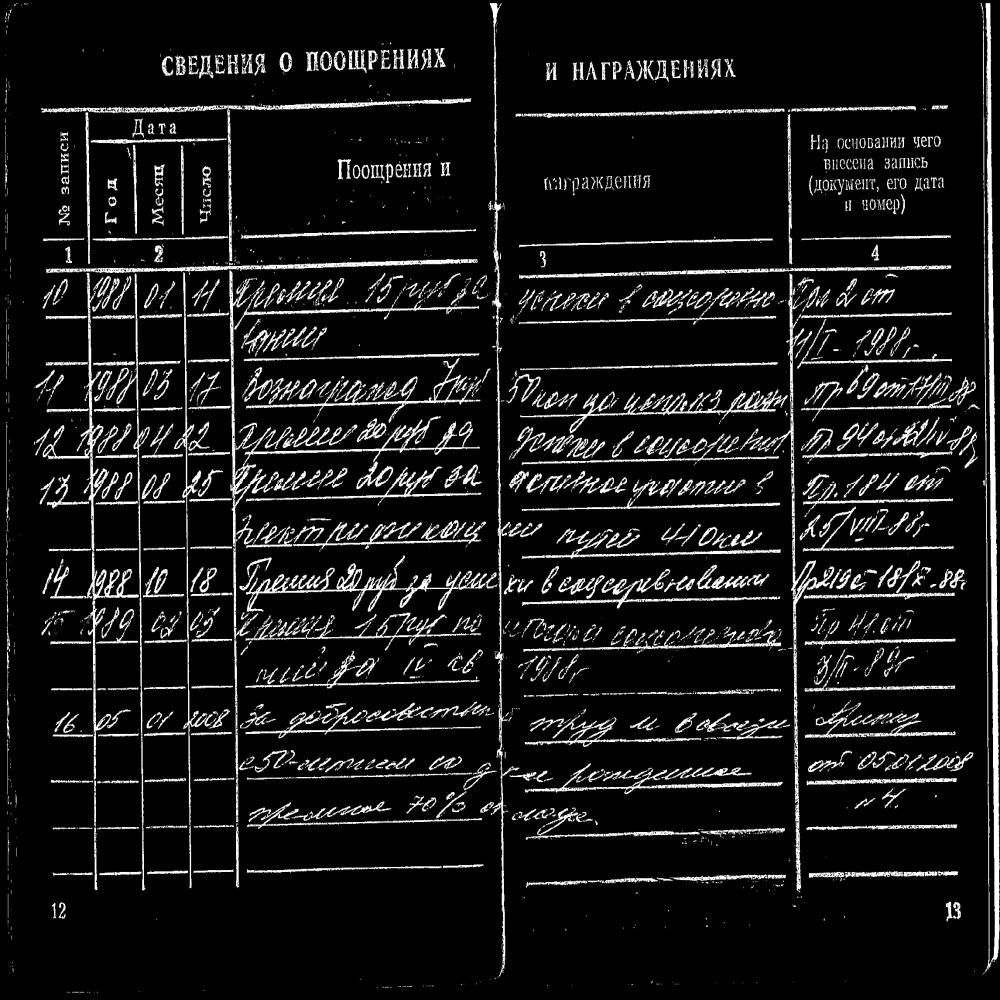 СВЕДЕНИЯ О ПООЩРЕНИЯХ И НАГРАЖДЕНИЯХ
№ записи
Дата
Год
Месяц
Число
Поощрения и награждения
На основании чего внесена запись (документ, его дата и номер)
1 2 3 4
10 1988 01 11 Премия 15 руб за успехи в соцсоревно- Пр 2 от
вании 11/I - 1988г.
11 1988 03 17 Вознагражд 7 руб 50 коп за использ рац. пр 69 от 17/III 88
12 1988 04 22 Премия 20 руб за успехи в соцсоревн. пр 94 от 22/IV 88г
13 1988 08 25 Премия 20 руб за активное участие в Пр. 184 от
электрификации путей 410 км 25/VIII-88г
14 1988 10 18 Премия 20 руб за успехи в соцсоревновании Пр 219 от 18/X-88г
15 1989 02 03 Премия 15 руб по итогам соцсоревнова Пр 41 от
ния за IV кв 1988г 3/II-89г
16 05 01 2008 За добросовестный труд и в связи Приказ
с 50-летием со дня рождения от 05.01.2008
премия 70% оклада. н 4.
12
13